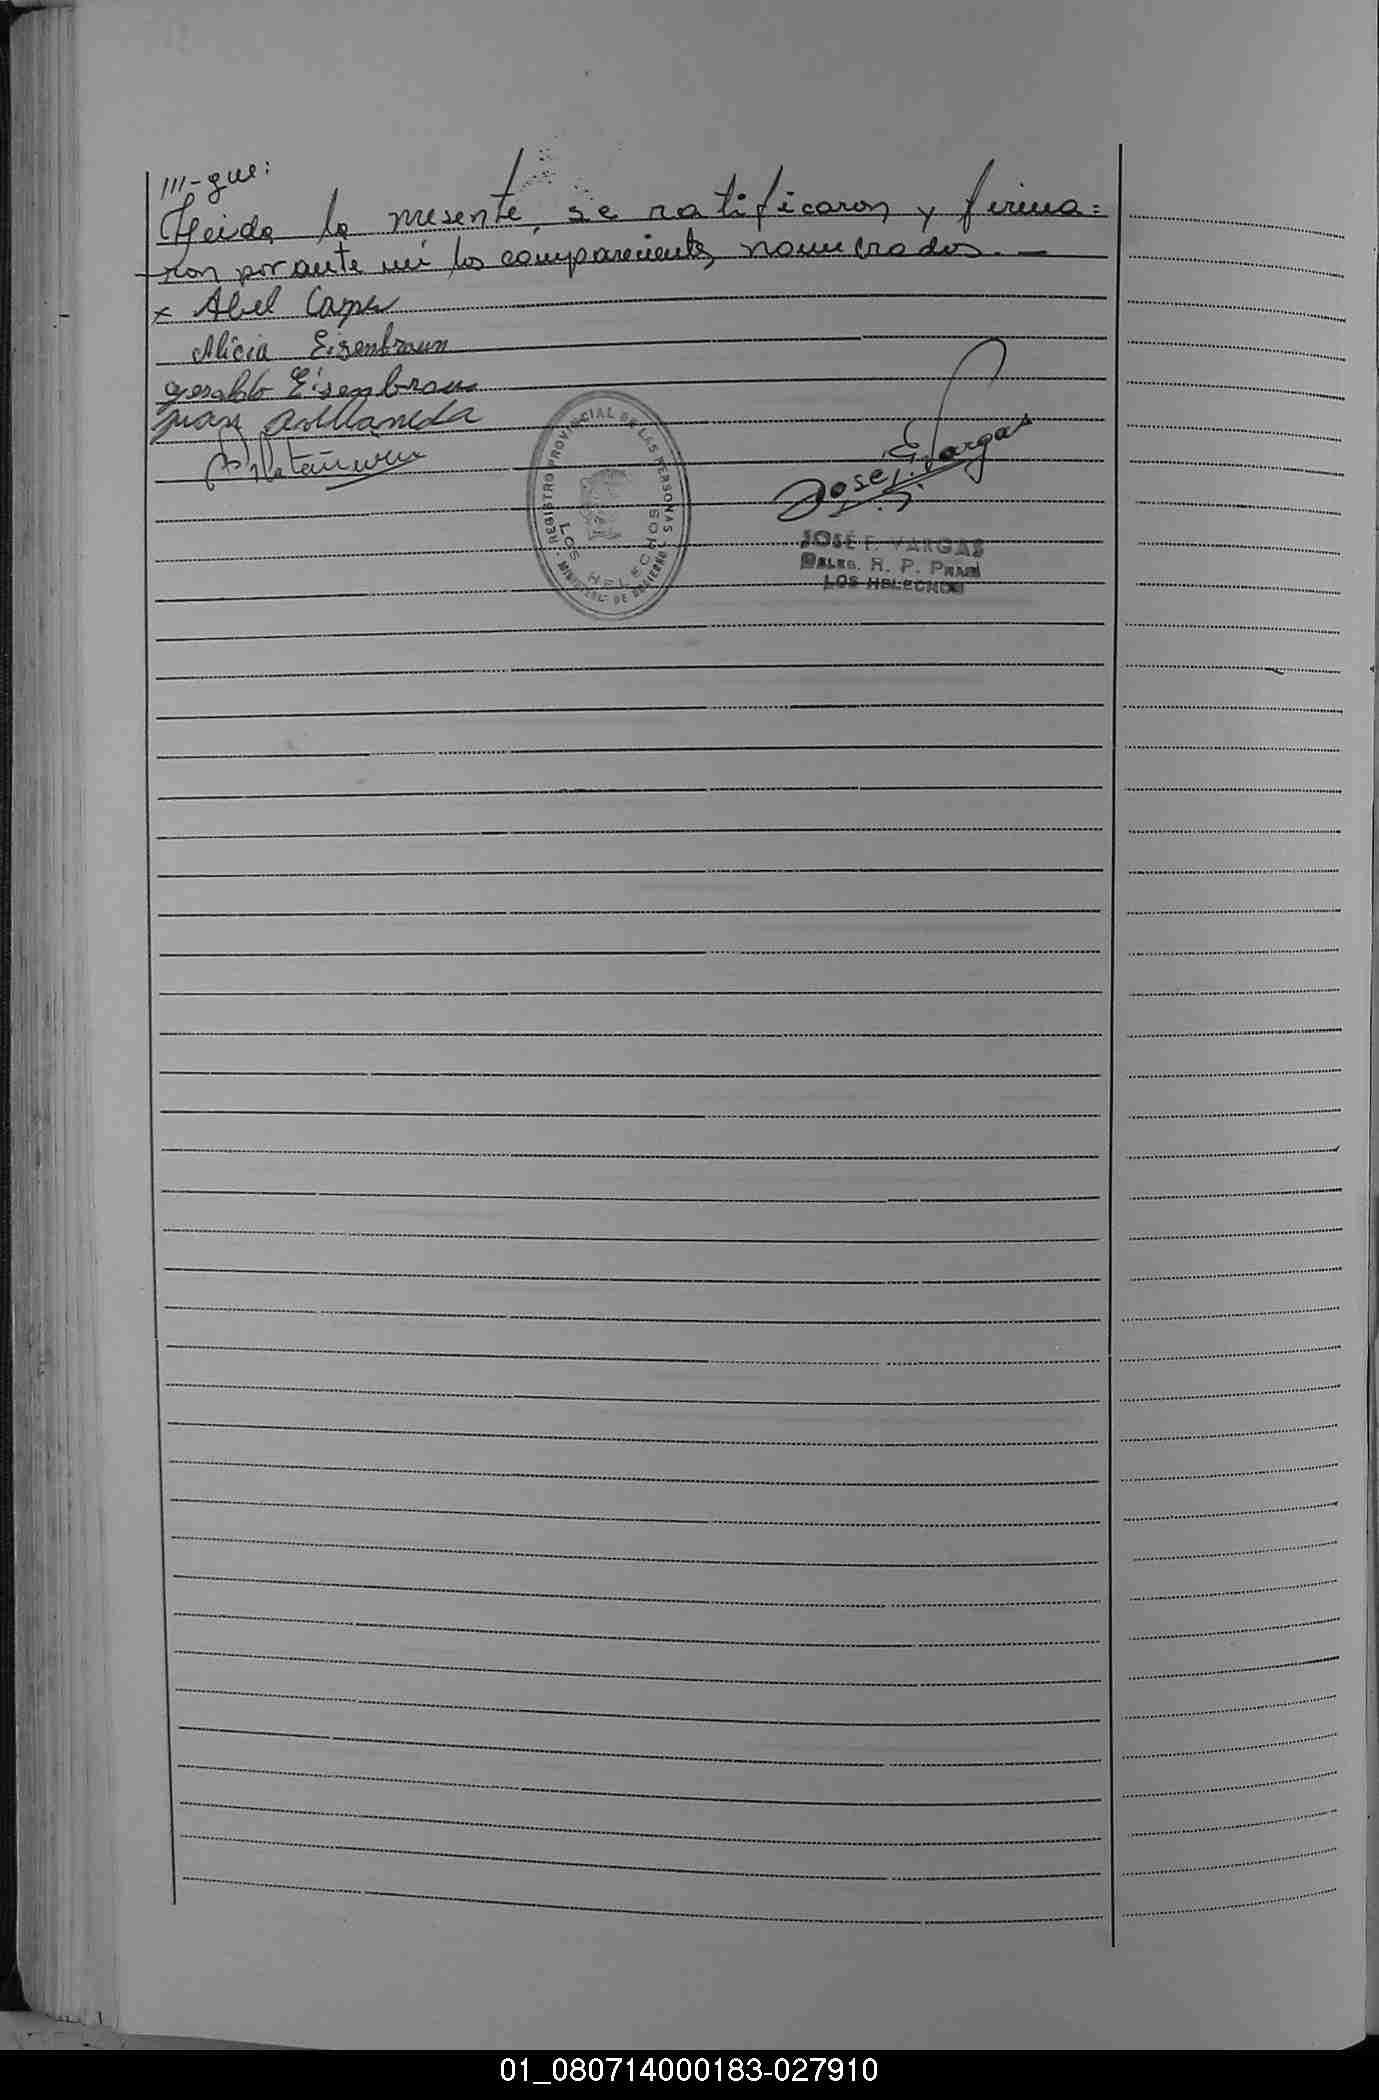 ///-gue:
Leida la presente, se ratificaron y firma=
ron por ante mi los comparecientes nomerados. —
x Abel
Alicia Eisenbraun
Geraldo Eisenbraun
Juan Avellaneda
Jose F. Vargas
REGISTRO PROVINCIAL DE LAS PERSONAS
LOS HELECHOS
MINISTERIO DE GOBIERNO
JOSÉ F. VARGAS
DELEG. R. P. PNAS
LOS HELECHOS
01_080714000183-027910